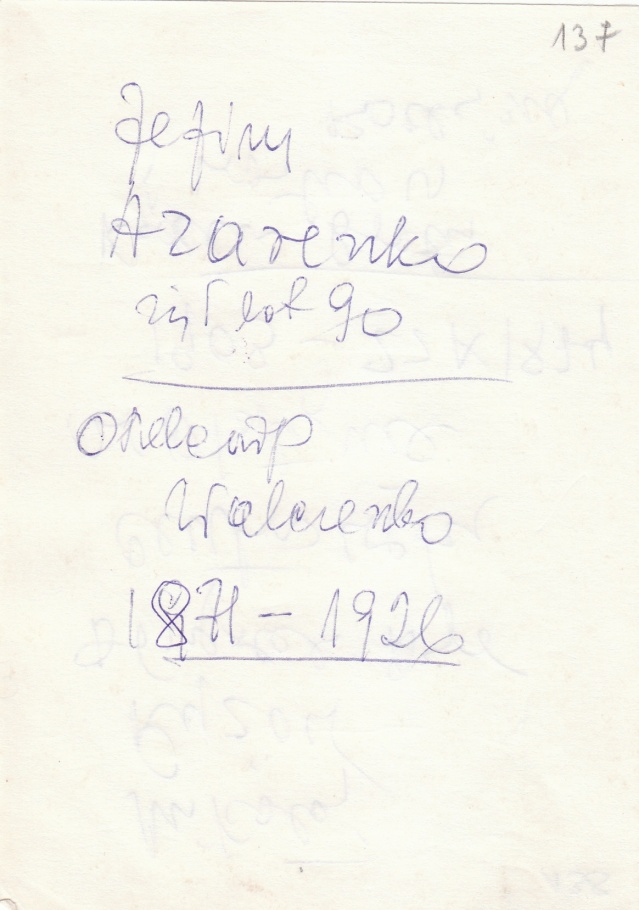 137
Jefim
Azarenko
żył lat 90
Walczenko
1871 – 1926